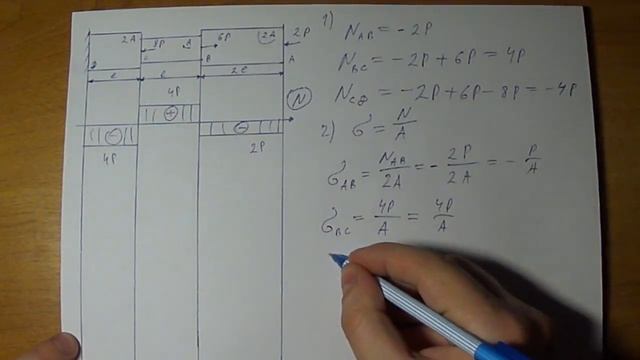 2A 8P A 6P 2A 2P
C B A
ℓ ℓ 2ℓ
4P N
4P 2P
1) N_AB = -2P
N_BC = -2P + 6P = 4P
N_CD = -2P + 6P - 8P = -4P
2) σ = N/A
σ_AB = N_AB/2A = - 2P/2A = - P/A
σ_BC = 4P/A = 4P/A